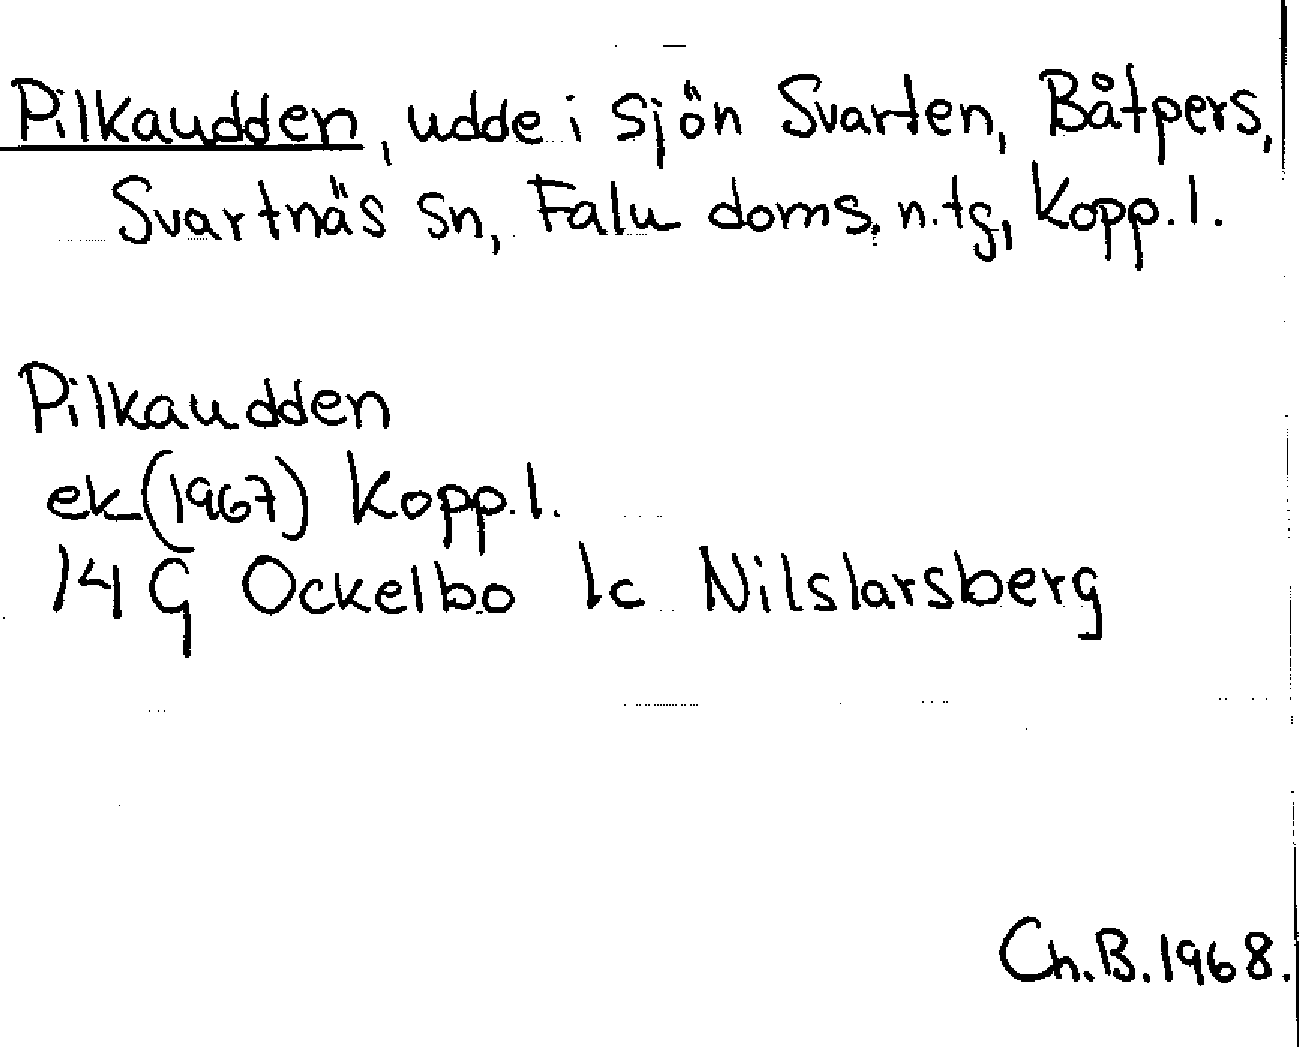 Pilkaudden, udde i sjön Svarten, Båtpers,
Svartnäs sn, Falu doms. n.tg, Kopp.l.
Pilkaudden
ek (1967) Kopp.l.
14 G Ockelbo 1c Nilslarsberg
Ch.B.1968.